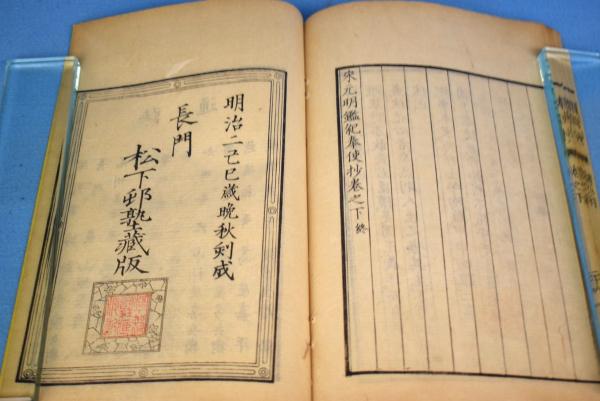 宋元明鑑紀奉使抄卷之下終
明治二己巳歳晩秋刻成
長門
松下邨塾藏版